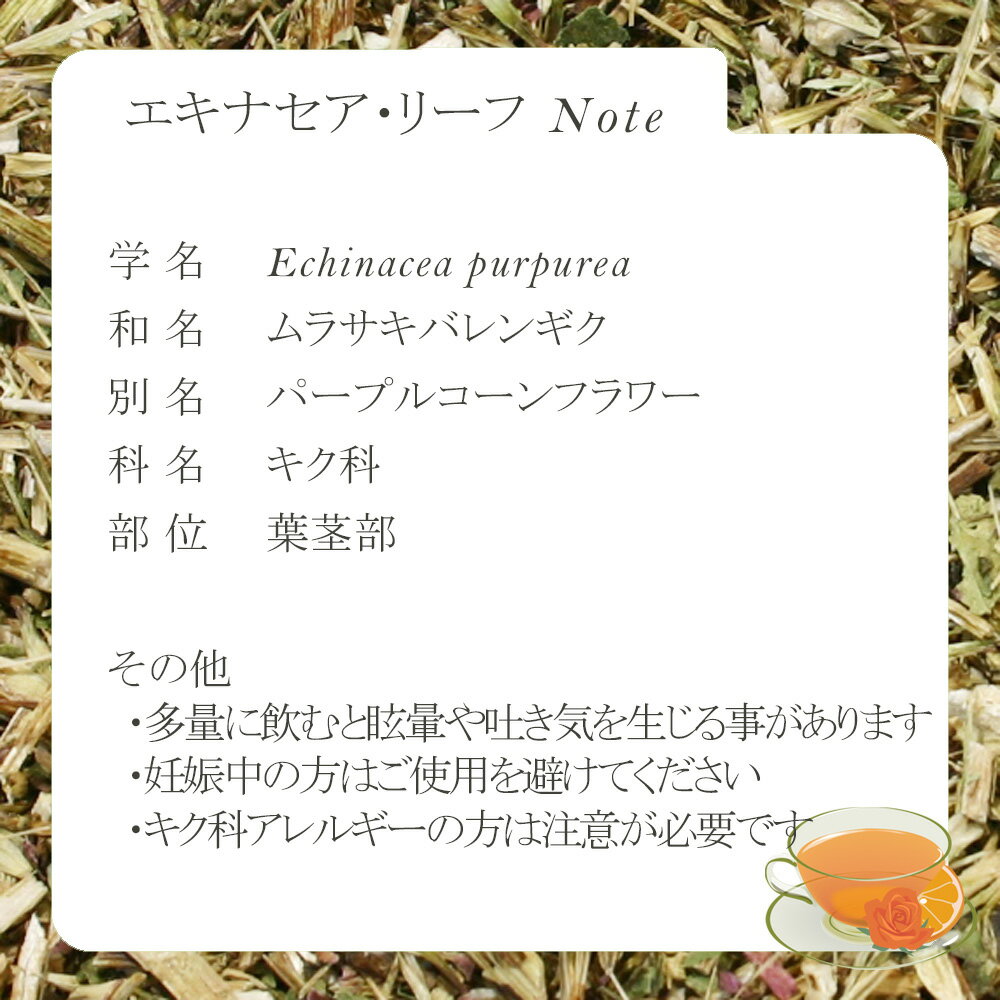 エキナセア・リーフ Note
学名 Echinacea purpurea
和名 ムラサキバレンギク
別名 パープルコーンフラワー
科名 キク科
部位 葉茎部
その他
・多量に飲むと眩暈や吐き気を生じる事があります
・妊娠中の方はご使用を避けてください
・キク科アレルギーの方は注意が必要です